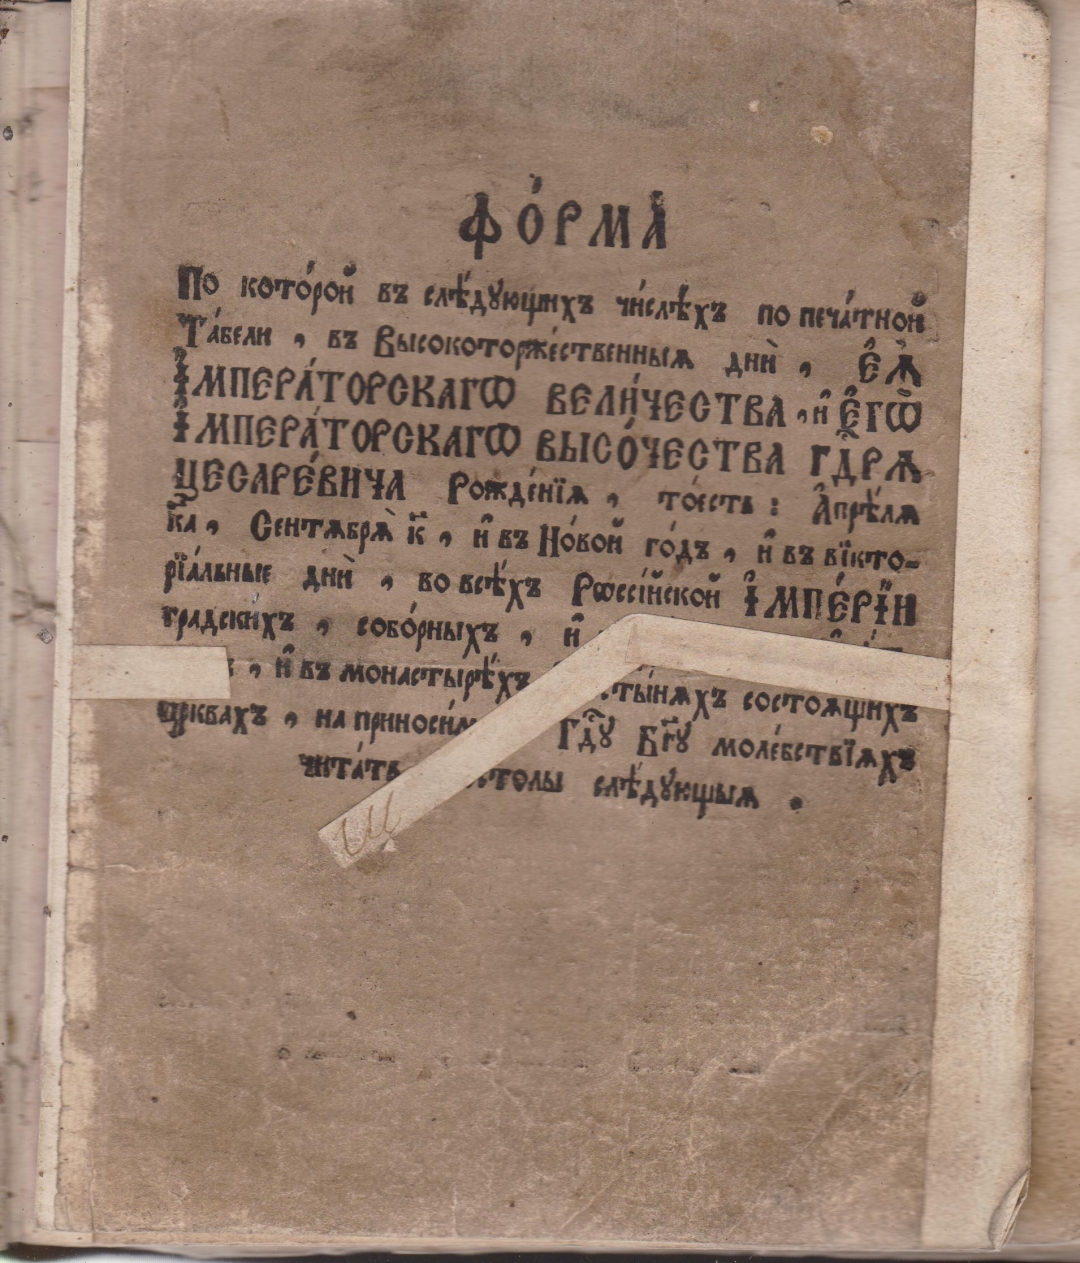 ФО́РМА̀
По кото́рой въ слѣ́дующихъ чи́слѣхъ по печа́тной
Та́бели , въ Высокоторже́ственныѧ дни̑ , Е҆Ѧ҆̀
І҆МПЕРА́ТОРСКАГѠ ВЕЛИ́ЧЕСТВА , и҆ Е҆ГѠ̀
І҆МПЕРА́ТОРСКАГѠ ВЫСО́ЧЕСТВА ГД҇РѦ
ЦЕСАРЕ́ВИЧА Рожде́нїѧ , то́есть : А҆прѣ́лѧ
к҃а , Сентѧбрѧ̀ к҃ , и҆ въ Но́вой го́дъ , и҆ въ вїкто-
рїа́льные дни̑ , во всѣ́хъ Рѡссі́йской І҆МПЕ́РЇИ
градскихъ , собо́рныхъ , и҆
, и҆ въ монастырѣ́хъ состоѧщихъ
црквахъ , на Гд҇ꙋ Бг҃ꙋ моле́бствїѧхъ
чита́ть слѣ́дующыѧ .
Щ